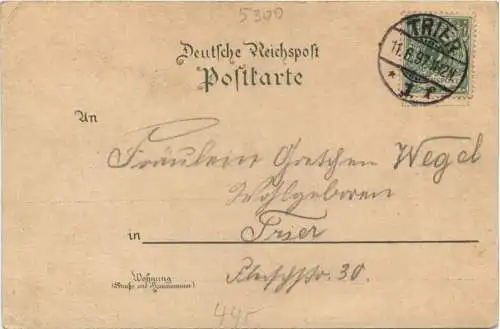 5300
Deutsche Reichspost
Postkarte
TRIER
11.6.97
* 1 f
An
Fräulein Gretchen Wegel
Wohlgeboren
in Trier
Wohnung
(Straße und Hausnummer)
Fleischstr. 30.